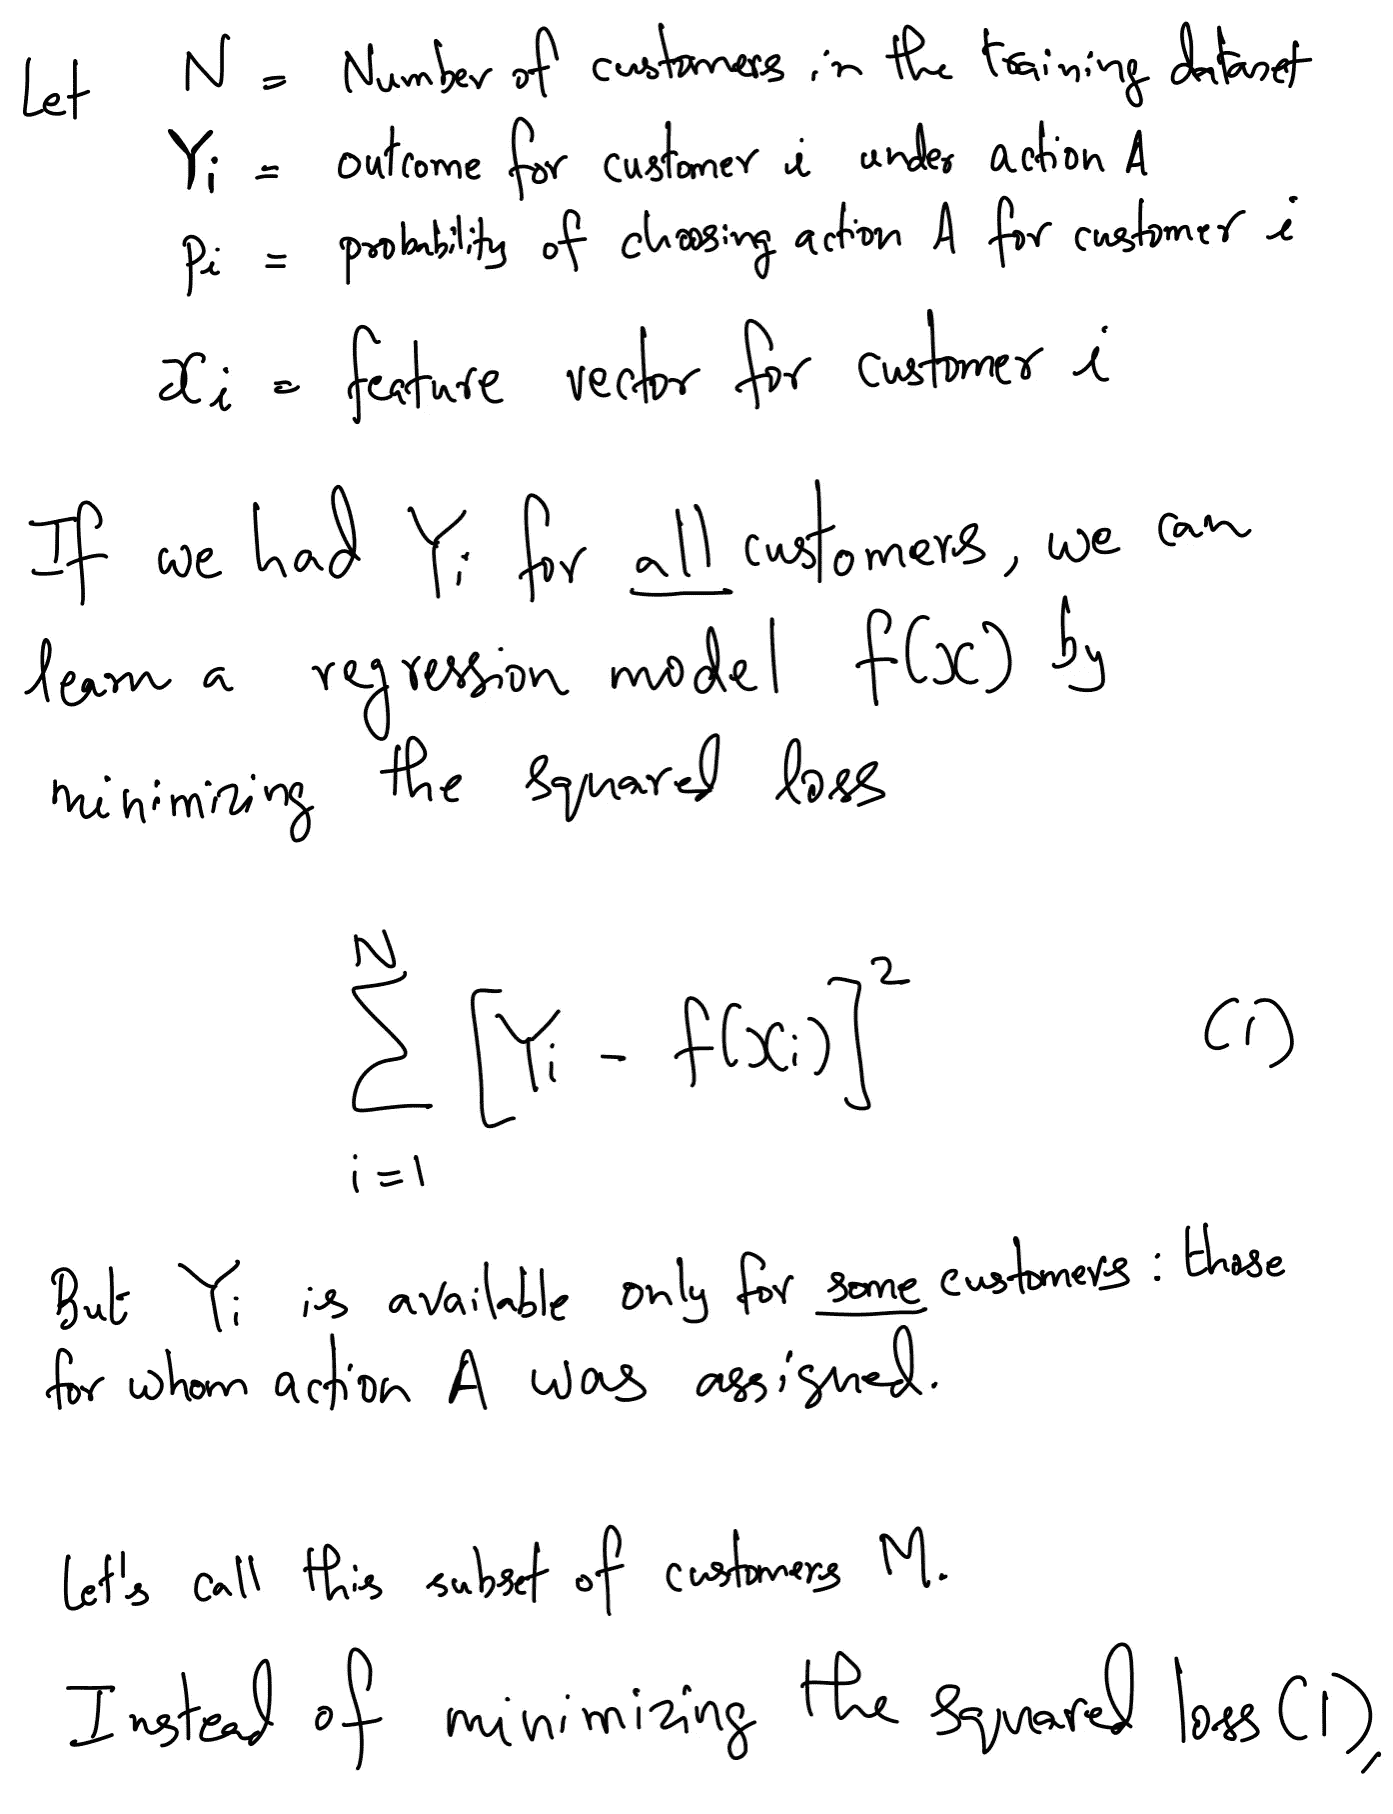 Let N = Number of customers in the training dataset
Yi = outcome for customer i under action A
pi = probability of choosing action A for customer i
xi = feature vector for customer i
If we had Yi for all customers, we can
learn a regression model f(x) by
minimizing the squared loss
N
∑ [Yi - f(xi)]² (1)
i=1
But Yi is available only for some customers: those
for whom action A was assigned.
Let's call this subset of customers M.
Instead of minimizing the squared loss (1),